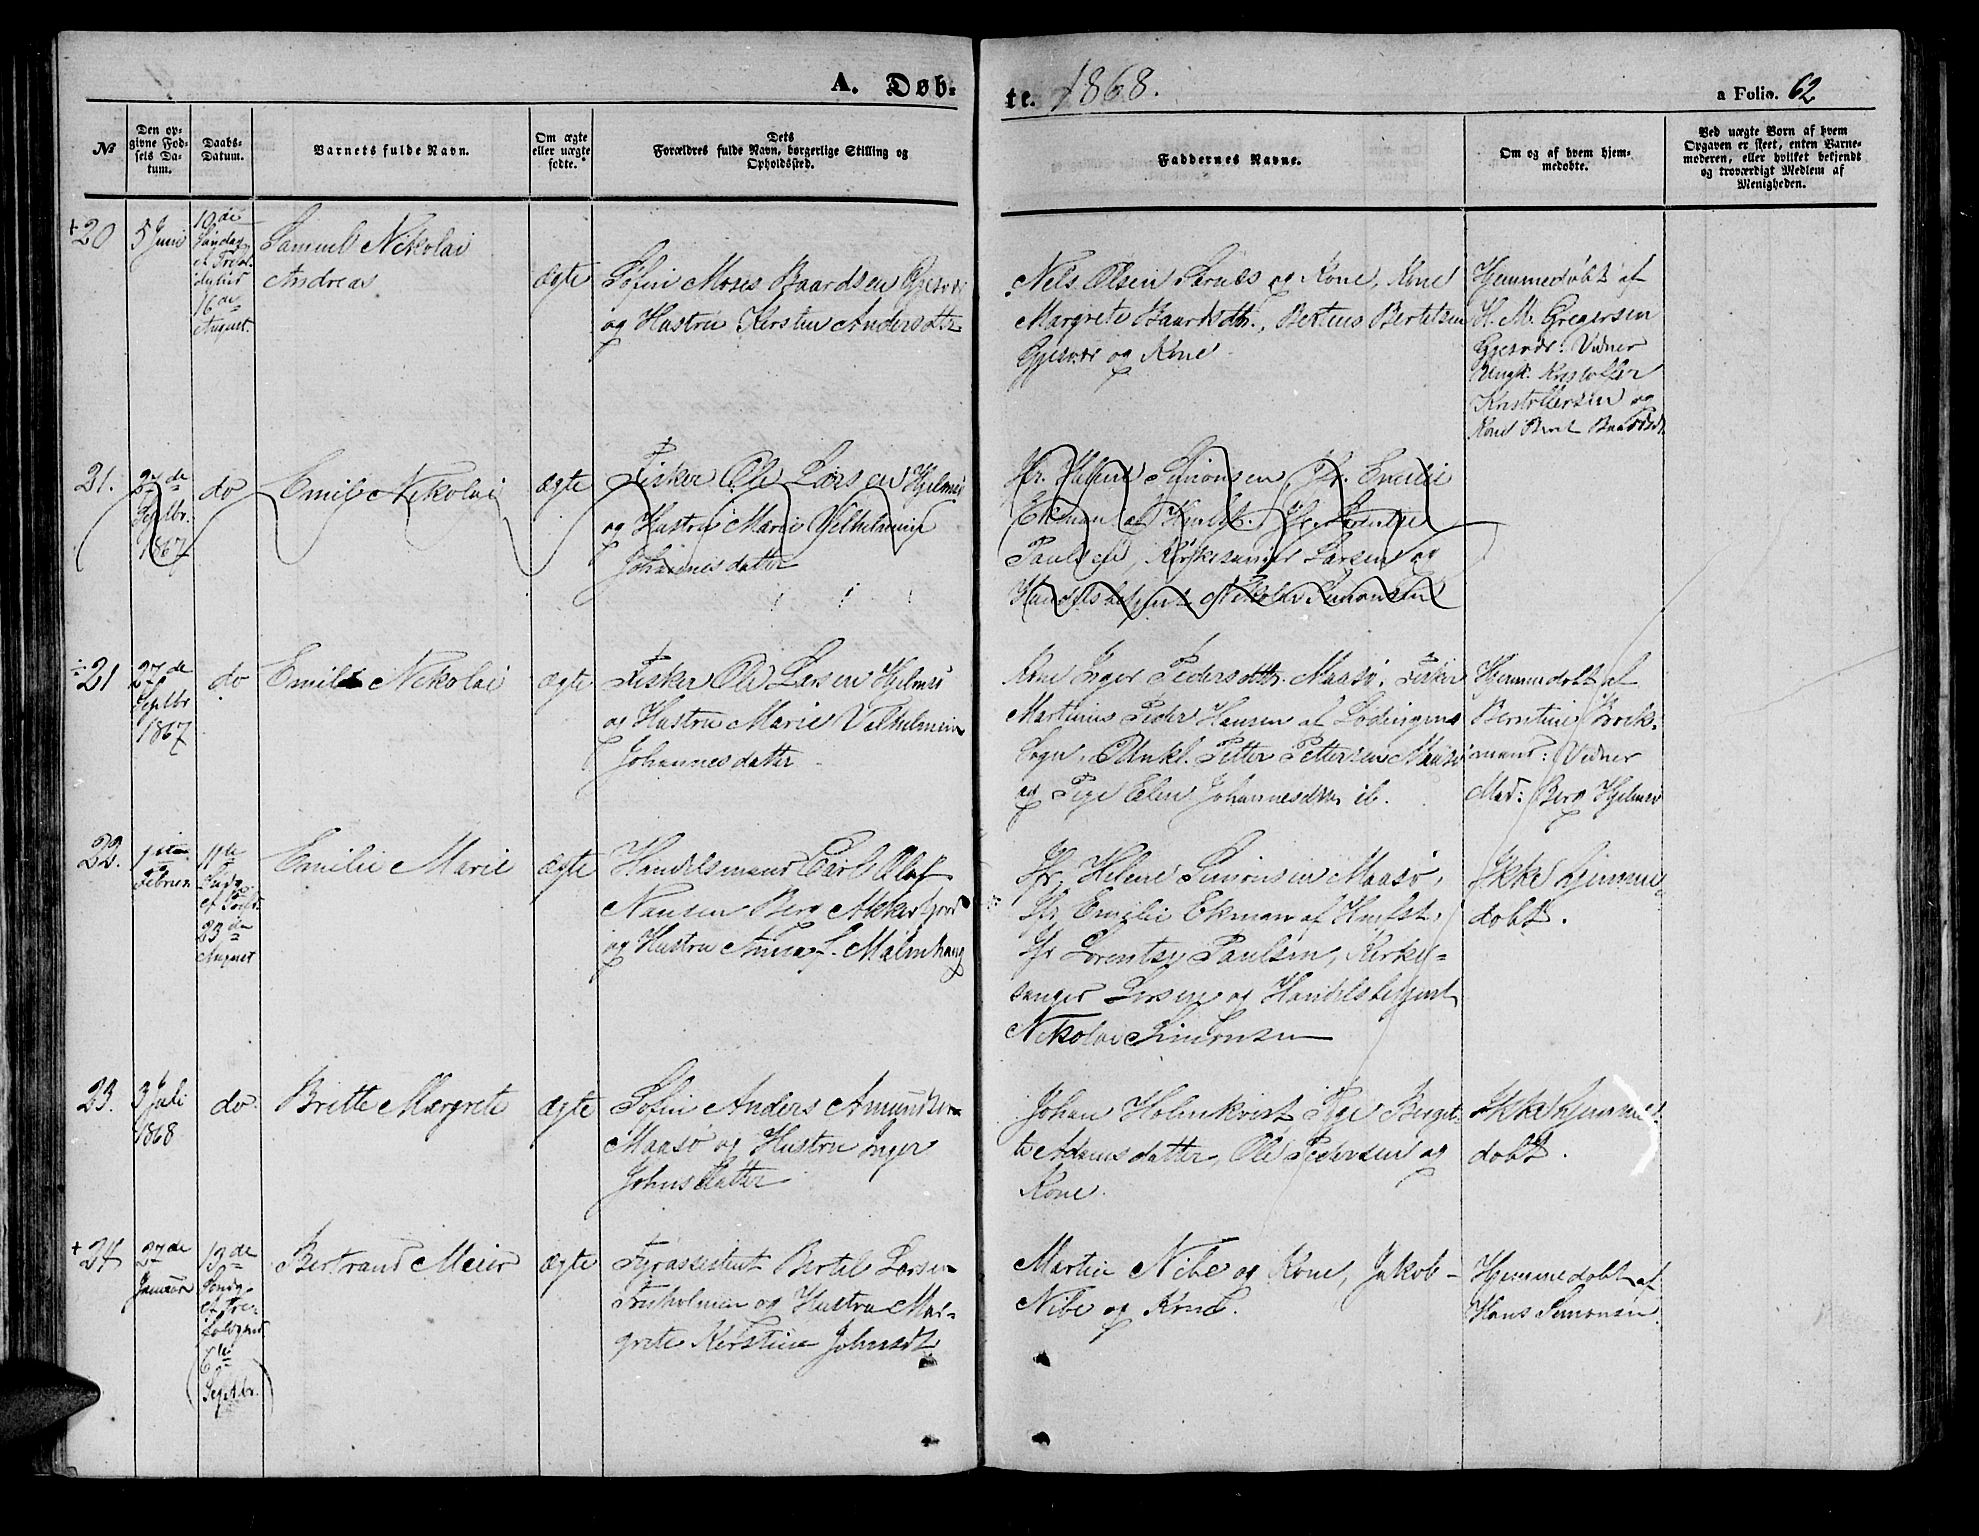 A. Døb-
te. 1868.
a Folio. 62
No
Den op-
givne Fød-
sels Da-
tum.
Daabs-
Datum.
Barnets fulde Navn.
Om ægte
eller uægte
fødte.
Dets
Forældres fulde Navn, borgerlige Stilling og
Opholdssted.
Faddernes Navne.
Om og af hvem hjem-
medøbte.
Ved uægte Børn af hvem
Opgaven er skeet, enten Barne-
moderen, eller hvilket bekjendt
og troværdigt Medlem af
Menigheden.
+20
5 Juni
10de
Søndag
e Tref.
16de
August.
Samuel Nikolai
Andreas
ægte
Søfin Moses Baardsen Gjesvær
og Hustru Kersten Andersdttr
Nels Olsen Sarnæs og Kone, Kone
Margrete Baardsdtr., Berteus Bertelsen
Gjesvær og Kone
Hjemmedøbt af
H. M. Gregersen
Gjesvær: Vidner
Ungk. Kristoffer
Kristoffersen og
Kone Berit Baardsd.
21.
27de
Septbr.
1867
do
Emil Nikolai
ægte
Fisker Ole Larsen Hjelmsø
og Hustru Marie Vilhelmine
Johannesdatter
Jfr. Helene Simonsen, Jfr. Emilie
Ekman af Hmfst. Jfr. Lorentse
Paulsen, Kirkesanger Larsen og
Handelsbetjent Nikolai Simonsen
÷21
27de
Septbr
1867
do
Emil Nikolai
ægte
Fisker Ole Larsen Hjelmsø
og Hustru Marie Vilhelmine
Johannesdatter
Kone Inger Pedersdttr. Maasø, Fisker
Martinus Peder Hansen af Lødingens
Sogn, Unkl. Petter Pettersen Maasø
og Pige Elen Johannesdttr ib.
Hjemmedøbt af
Berntine Broks-
mand: Vidner
Mad: Berg Hjelmsø
22.
1ste
Februar
11te
Sndg.
ef Tref.
23de
August
Emilie Marie
ægte
Handelsmand Carl Olaf
Nansen Berg Akkerfjord
og Hustru Anna f. Malmhaug
Jfr. Helene Simonsen Maasø,
Jfr Emilie Ekman af Hmfst,
Jfr Lorentse Paulsen, Kirke-
sanger Larsen og Handelsbetjent
Nikolai Simonsen
Ikke hjemme-
døbt.
23.
3 Juli
1868
do.
Britte Margrete
ægte
Søfin Anders Amundsen
Maasø og Hustru Inger
Johnsdatter
Johan Holmkvist, Pige Berget-
te Adamsdatter, Ole Pedersen og
Kone.
Ikke hjemme-
døbt.
+24
27de
Januar
13de
Søndg
ef Tre-
6te
Septbr.
Bertrand Meier
ægte
Fyrassistent Bertel Larsen
Fruholmen og Hustru Mar-
grete Kirstine Johnsdt.
Martin Nibe og Kone, Jakob
Nibe og Kone.
Hjemmedøbt af
Hans Simonsen